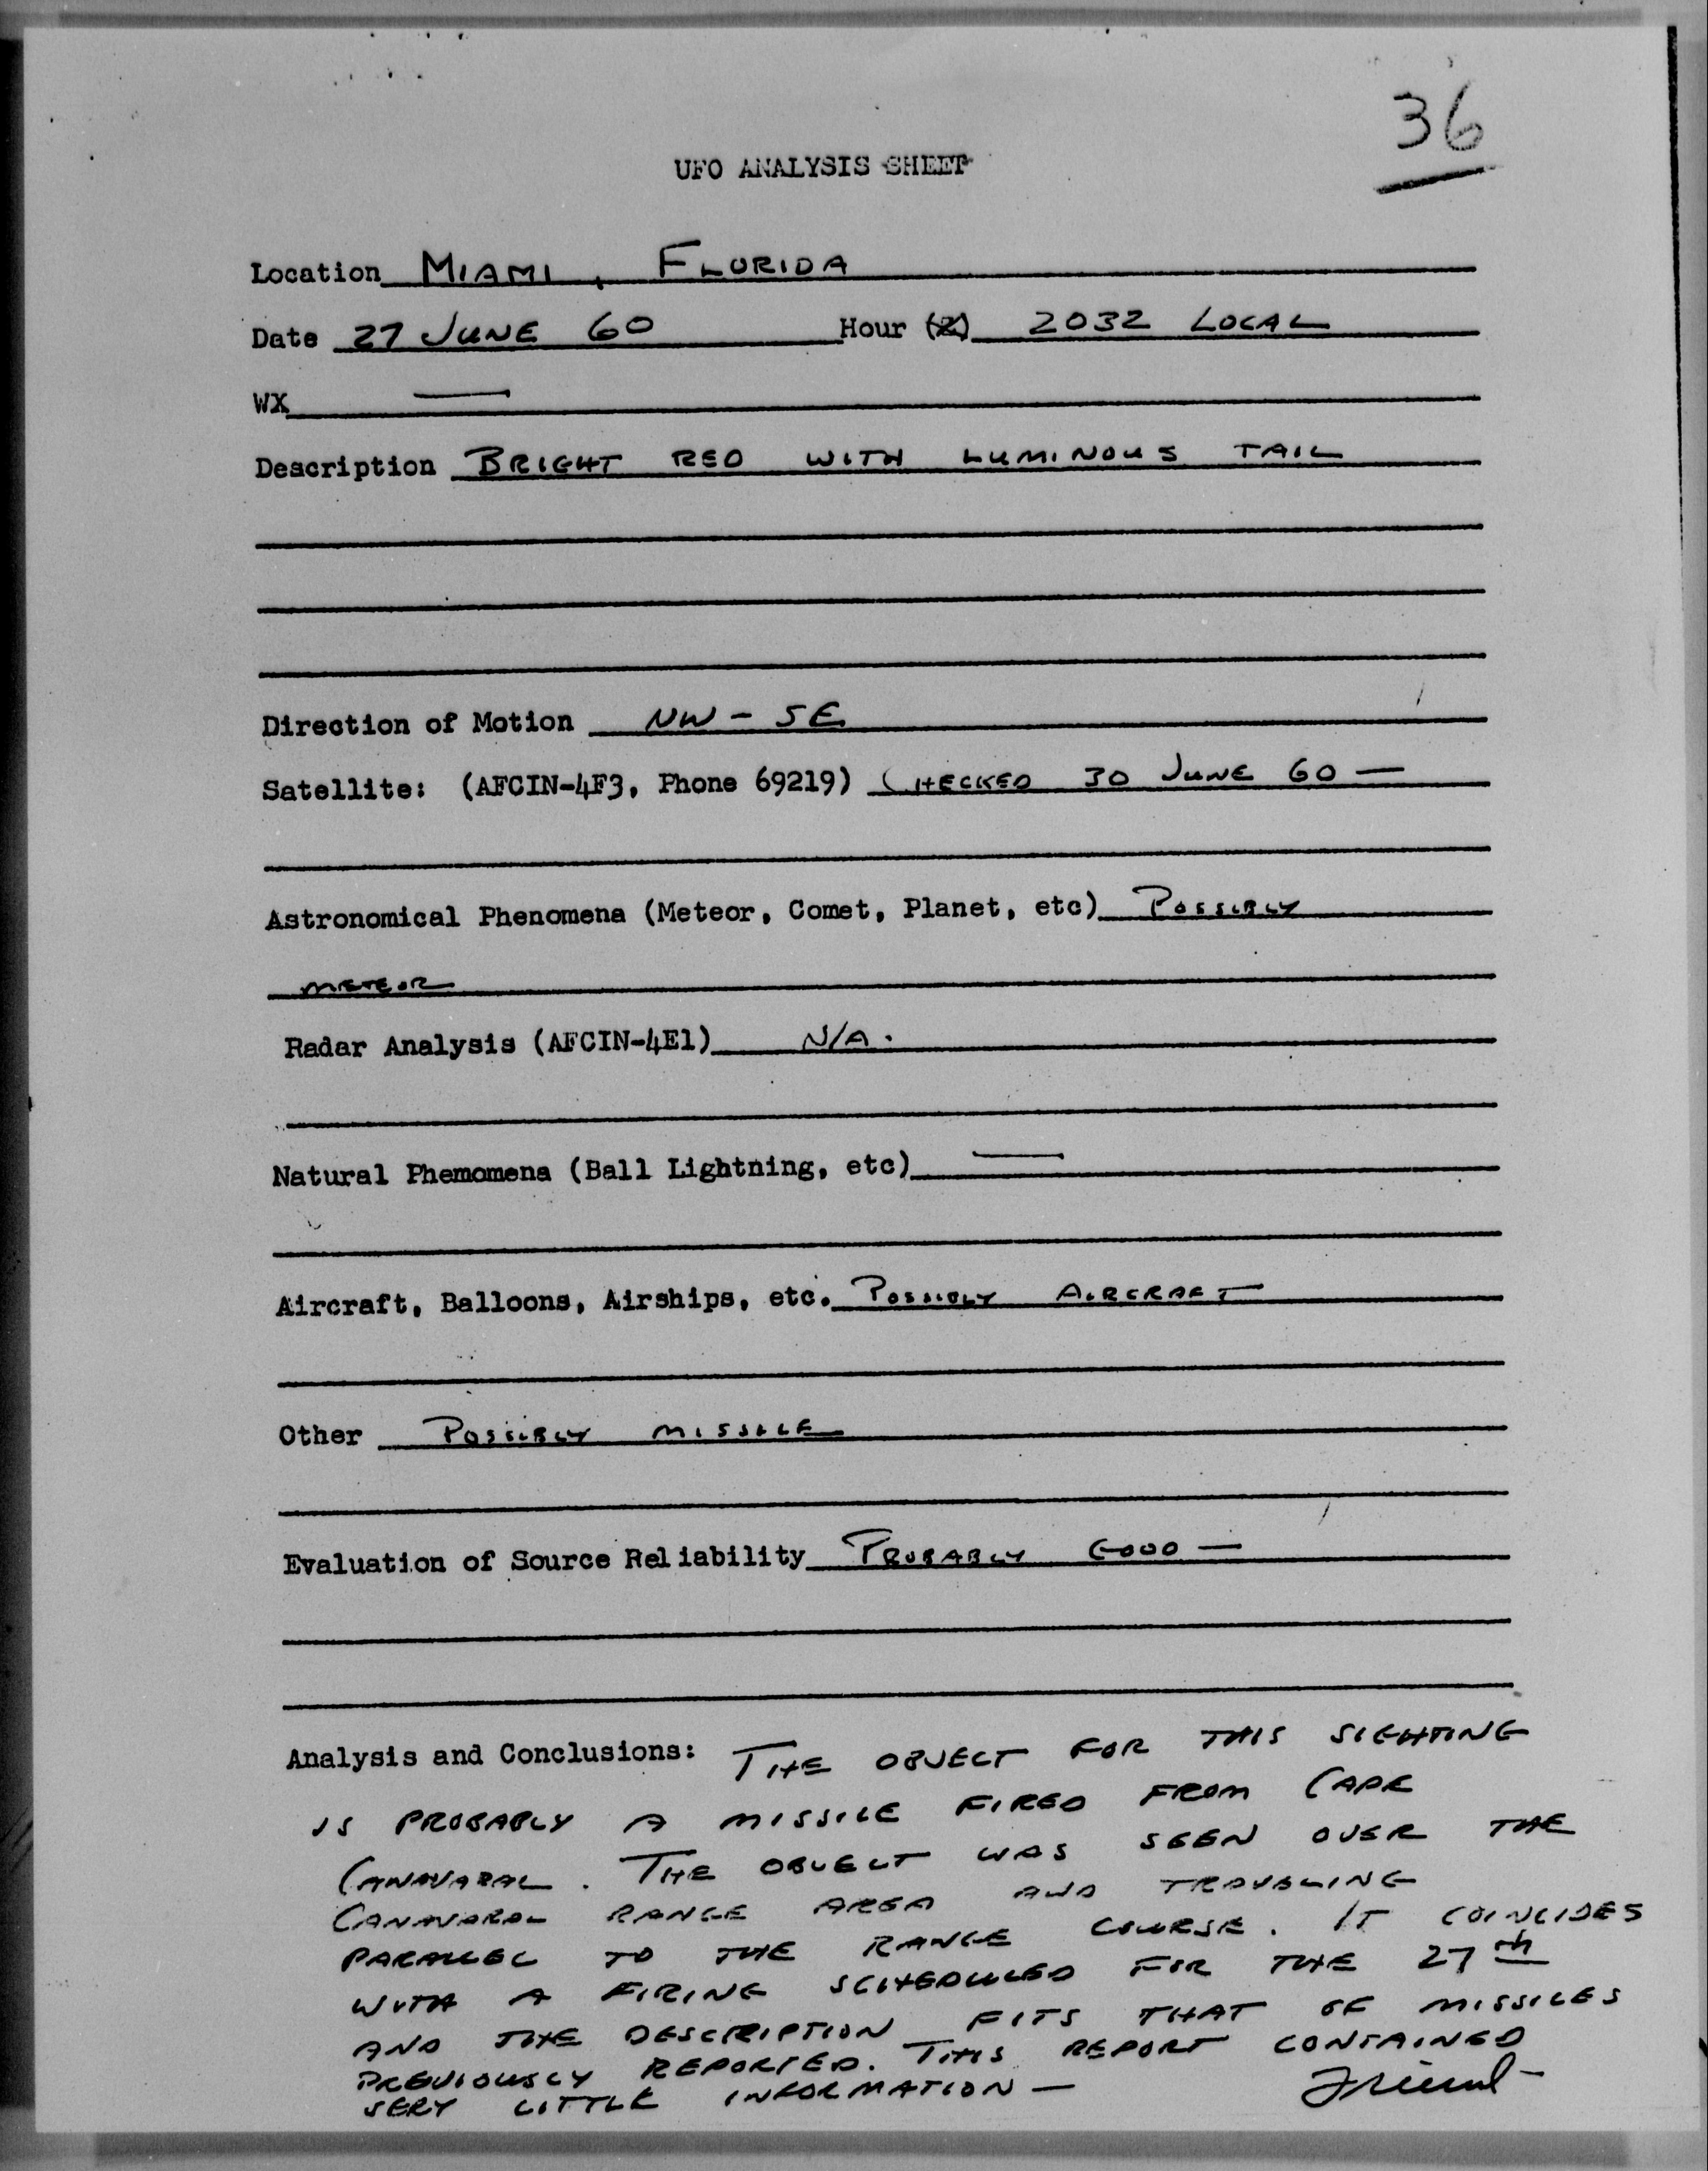 36
UFO ANALYSIS SHEET
Location MIAMI, FLORIDA
Date 27 JUNE 60 Hour (Z) 2032 LOCAL
WX —
Description BRIGHT RED WITH LUMINOUS TAIL
Direction of Motion NW - SE
Satellite: (AFCIN-4F3, Phone 69219) CHECKED 30 JUNE 60 —
Astronomical Phenomena (Meteor, Comet, Planet, etc) POSSIBLY
METEOR
Radar Analysis (AFCIN-4E1) N/A.
Natural Phemomena (Ball Lightning, etc) —
Aircraft, Balloons, Airships, etc. POSSIBLY AIRCRAFT
Other POSSIBLY MISSILE
Evaluation of Source Reliability PROBABLY GOOD —
Analysis and Conclusions: THE OBJECT FOR THIS SIGHTING
IS PROBABLY A MISSILE FIRED FROM CAPE
CANAVARAL. THE OBJECT WAS SEEN OVER THE
CANAVARAL RANGE AREA AND TRAVELING
PARALLEL TO THE RANGE COURSE. IT COINCIDES
WITH A FIRING SCHEDULED FOR THE 27th
AND THE DESCRIPTION FITS THAT OF MISSILES
PREVIOUSLY REPORTED. THIS REPORT CONTAINED
VERY LITTLE INFORMATION — Friend -